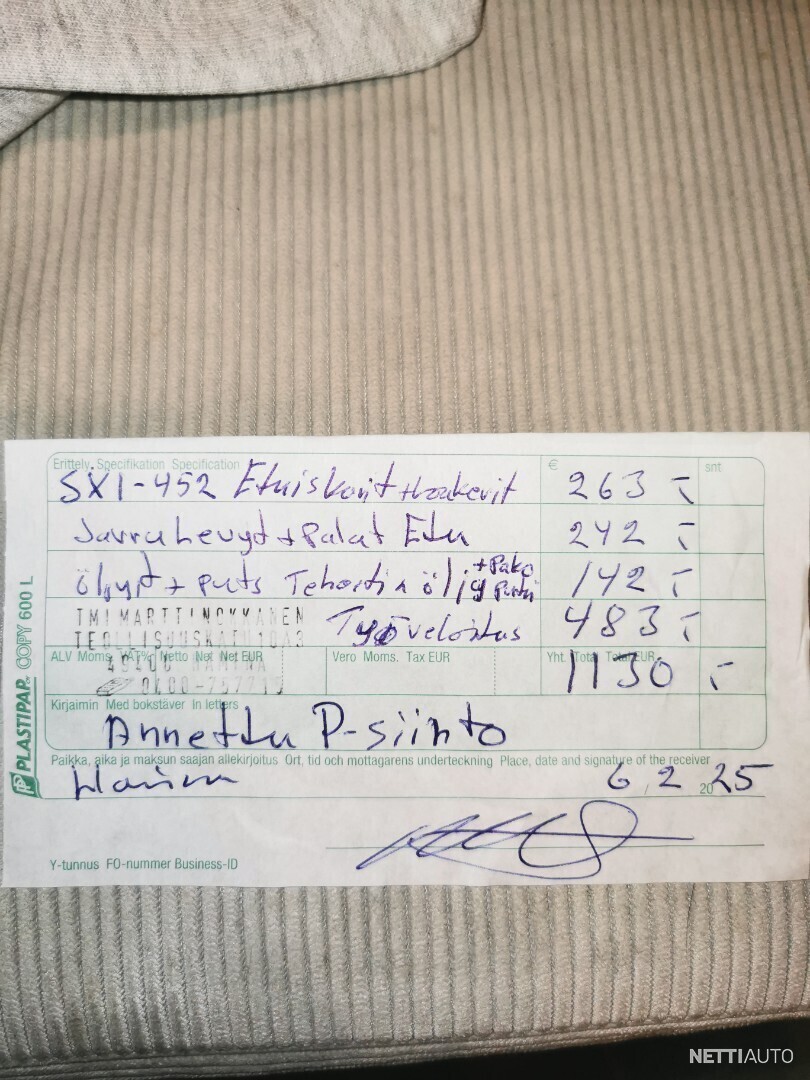 Erittely Specifikation Specification € snt
SXI-452 Etuiskarit + 263 -
Jarrulevyt + Palat Etu 242 -
öljyt + puts Tehostin öljy + Pako 142 -
TMI MARTTI NOKKANEN Työveloitus 483 -
TEOLLISUUSKATU 10A3
ALV Moms. VAT% Netto Net Net EUR Vero Moms. Tax EUR Yht. Total Total EUR
1130 -
0400-757715
Kirjaimin Med bokstäver In letters
Annettu P-siirto
Paikka, aika ja maksun saajan allekirjoitus Ort, tid och mottagarens underteckning Place, date and signature of the receiver
6.2 2025
Y-tunnus FO-nummer Business-ID
PLASTIPAP COPY 600 L
NETTIAUTO